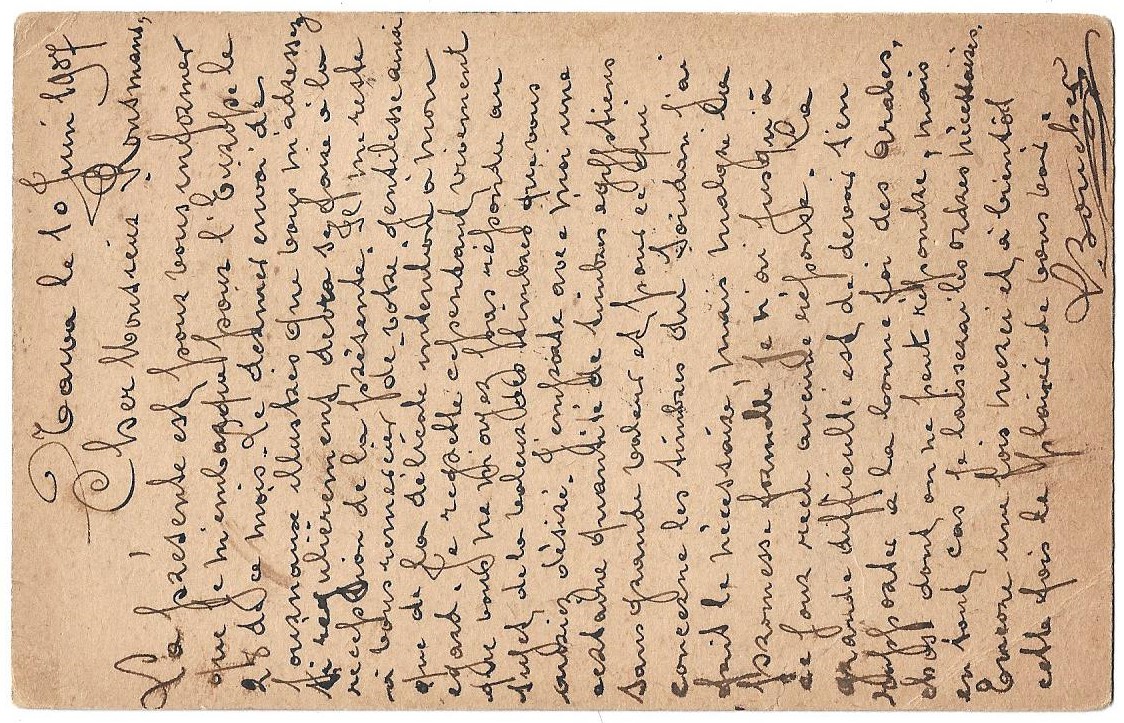 Tanta le 10 Juin 1907
Cher Monsieur Roustmans,
La présente est pour vous informer
que je m'embarque pour l'Europe le
28 de ce mois. Le dernier envoi de
Journaux illustrés que vous m'adressez
si régulièrement, devra se faire à la
reception de la présente. Il me reste
à vous remercier de votre gentillesse ainsi
que de la délicate intention à mon
égard. Je regrette cependant vivement
que vous ne m'ayez pas répondu au
sujet de la valeur des timbres que vous
auriez désiré. J'emporte avec moi une
certaine quantité de timbres egyptiens
sans grande valeur et pour ce qui
concerne les timbres du Soudan j'ai
fait le nécessaire mais malgré la
promesse formelle je n'ai jusqu'à
ce jour reçu aucune réponse. La
grande difficulté est de devoir s'en
rapporter à la bonne foi des Arabes,
chose dont on ne peut répondre, mais
en tout cas je laisserai les ordres nécessaires.
Encore une fois merci et à bientôt
cette fois le plaisir de vous voir
Boucher